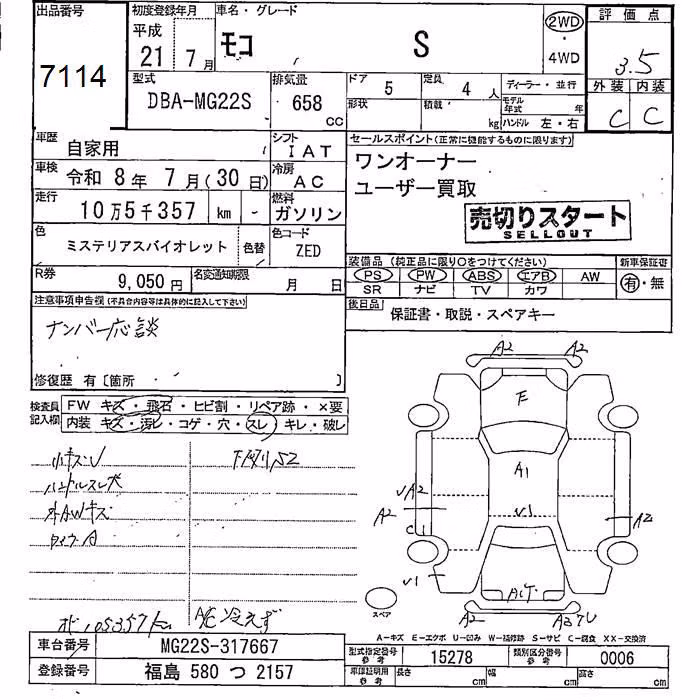 出品番号
7114
初度登録年月
平成
21年7月
車名・グレード
モコ S
2WD
4WD
評価点
3.5
外装 内装
C C
型式
DBA-MG22S
排気量
658 CC
ドア 5
定員 4人
ディーラー・並行
形状
積載 kg
モデル年式 年
ハンドル 左・右
車歴 自家用
シフト IAT
車検 令和 8年 7月(30日)
冷房 AC
走行 10万5千357 km -
燃料 ガソリン
色 ミステリアスバイオレット 色替
色コード ZED
R券 9,050円
名変通知期限 月 日
セールスポイント(正常に機能するものに限ります)
ワンオーナー
ユーザー買取
売切りスタート
SELLOUT
装備品(純正品に限り○をつけてください)
新車保証書
PS PW ABS エアB AW
SR ナビ TV カワ
有・無
後日品 保証書・取説・スペアキー
注意事項申告欄(不具合内容等は具体的に記入して下さい)
ナンバー応談
修復歴 有〔箇所 〕
検査員記入欄
FW キズ・飛石・ヒビ割・リペア跡・×要
内装 キズ・汚レ・コゲ・穴・スレ・キレ・破レ
小キズU
ハンドルスレ大
外AWキズ
下廻りS2
オド105357km
A/C冷えず
A2 A2
E
A1
U1
UA2
A2
C1
A2
U1
A2
スペア
A-キズ E-エクボ U-凹み W-補修跡 S-サビ C-腐食 XX-交換済
車台番号 MG22S-317667
登録番号 福島 580 つ 2157
型式指定番号 参考 15278
類別区分番号 参考 0006
車庫証明用 参考 長さ cm 幅 cm 高さ cm